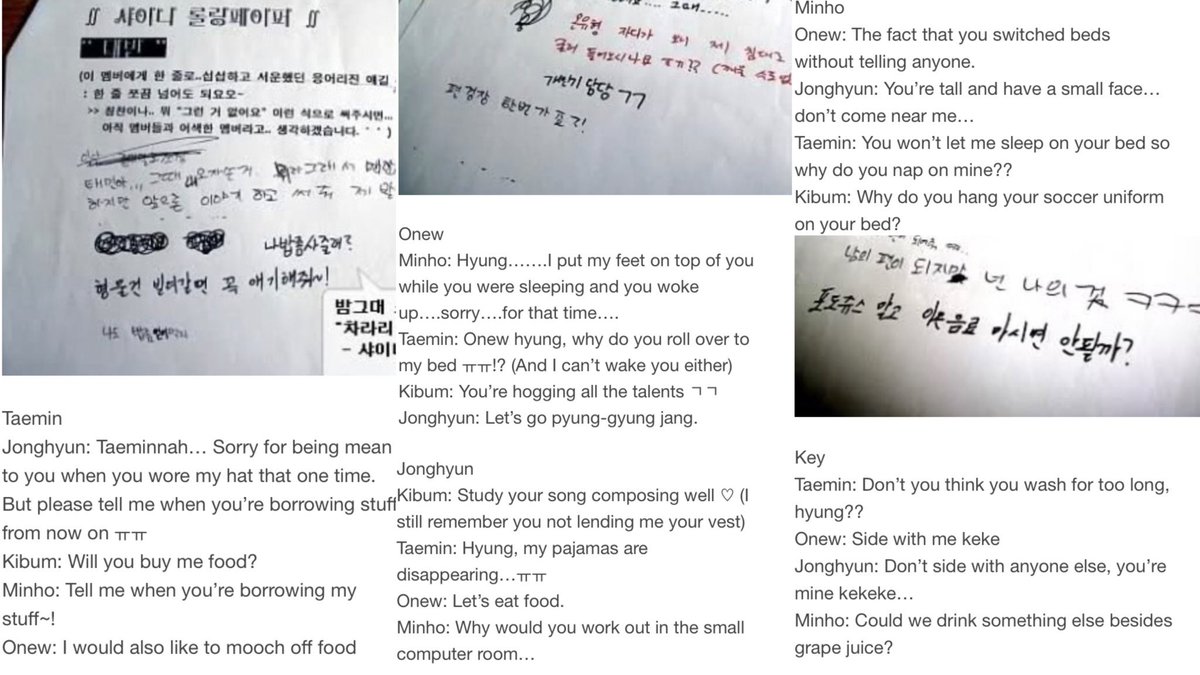 ∬ 샤이니 롤링페이퍼 ∬
" 태민 "
(이 멤버에게 한 줄로..섭섭하고 서운했던 응어리진 얘길
: 한 줄 쪼끔 넘어도 되요오~
>> 칭찬이나.. 뭐 "그런 거 없어요" 이런 식으로 써주시면...
아직 멤버들과 어색한 멤버라고.. 생각하겠습니다. ^ ^ )
태민아... 그때 내 모자쓴거. 뭐라그래서
하지만 앞으론 이야기 하고 써 줘 제발
나밥좀사줄래?
형 물건 빌려갈땐 꼭 얘기해줘~!
나도
밤그대
"차라리
- 샤이니
Taemin
Jonghyun: Taeminnah… Sorry for being mean
to you when you wore my hat that one time.
But please tell me when you're borrowing stuff
from now on ㅠㅠ
Kibum: Will you buy me food?
Minho: Tell me when you're borrowing my
stuff~!
Onew: I would also like to mooch off food
온유형 자다가 왜 제 침대로
굴러 들어오시나요 ㅠㅠ!?
개인기 담당 ㄱㄱ
편경장 한번 가죠!
Onew
Minho: Hyung…….I put my feet on top of you
while you were sleeping and you woke
up….sorry….for that time….
Taemin: Onew hyung, why do you roll over to
my bed ㅠㅠ!? (And I can't wake you either)
Kibum: You're hogging all the talents ㄱㄱ
Jonghyun: Let's go pyung-gyung jang.
Jonghyun
Kibum: Study your song composing well ♡ (I
still remember you not lending me your vest)
Taemin: Hyung, my pajamas are
disappearing…ㅠㅠ
Onew: Let's eat food.
Minho: Why would you work out in the small
computer room…
Minho
Onew: The fact that you switched beds
without telling anyone.
Jonghyun: You're tall and have a small face…
don't come near me…
Taemin: You won't let me sleep on your bed so
why do you nap on mine??
Kibum: Why do you hang your soccer uniform
on your bed?
남의 편이 되지마 넌 나의 것 ㅋㅋㅋ
포도쥬스 말고 다른음료 마시면 안될까?
Key
Taemin: Don't you think you wash for too long,
hyung??
Onew: Side with me keke
Jonghyun: Don't side with anyone else, you're
mine kekeke…
Minho: Could we drink something else besides
grape juice?